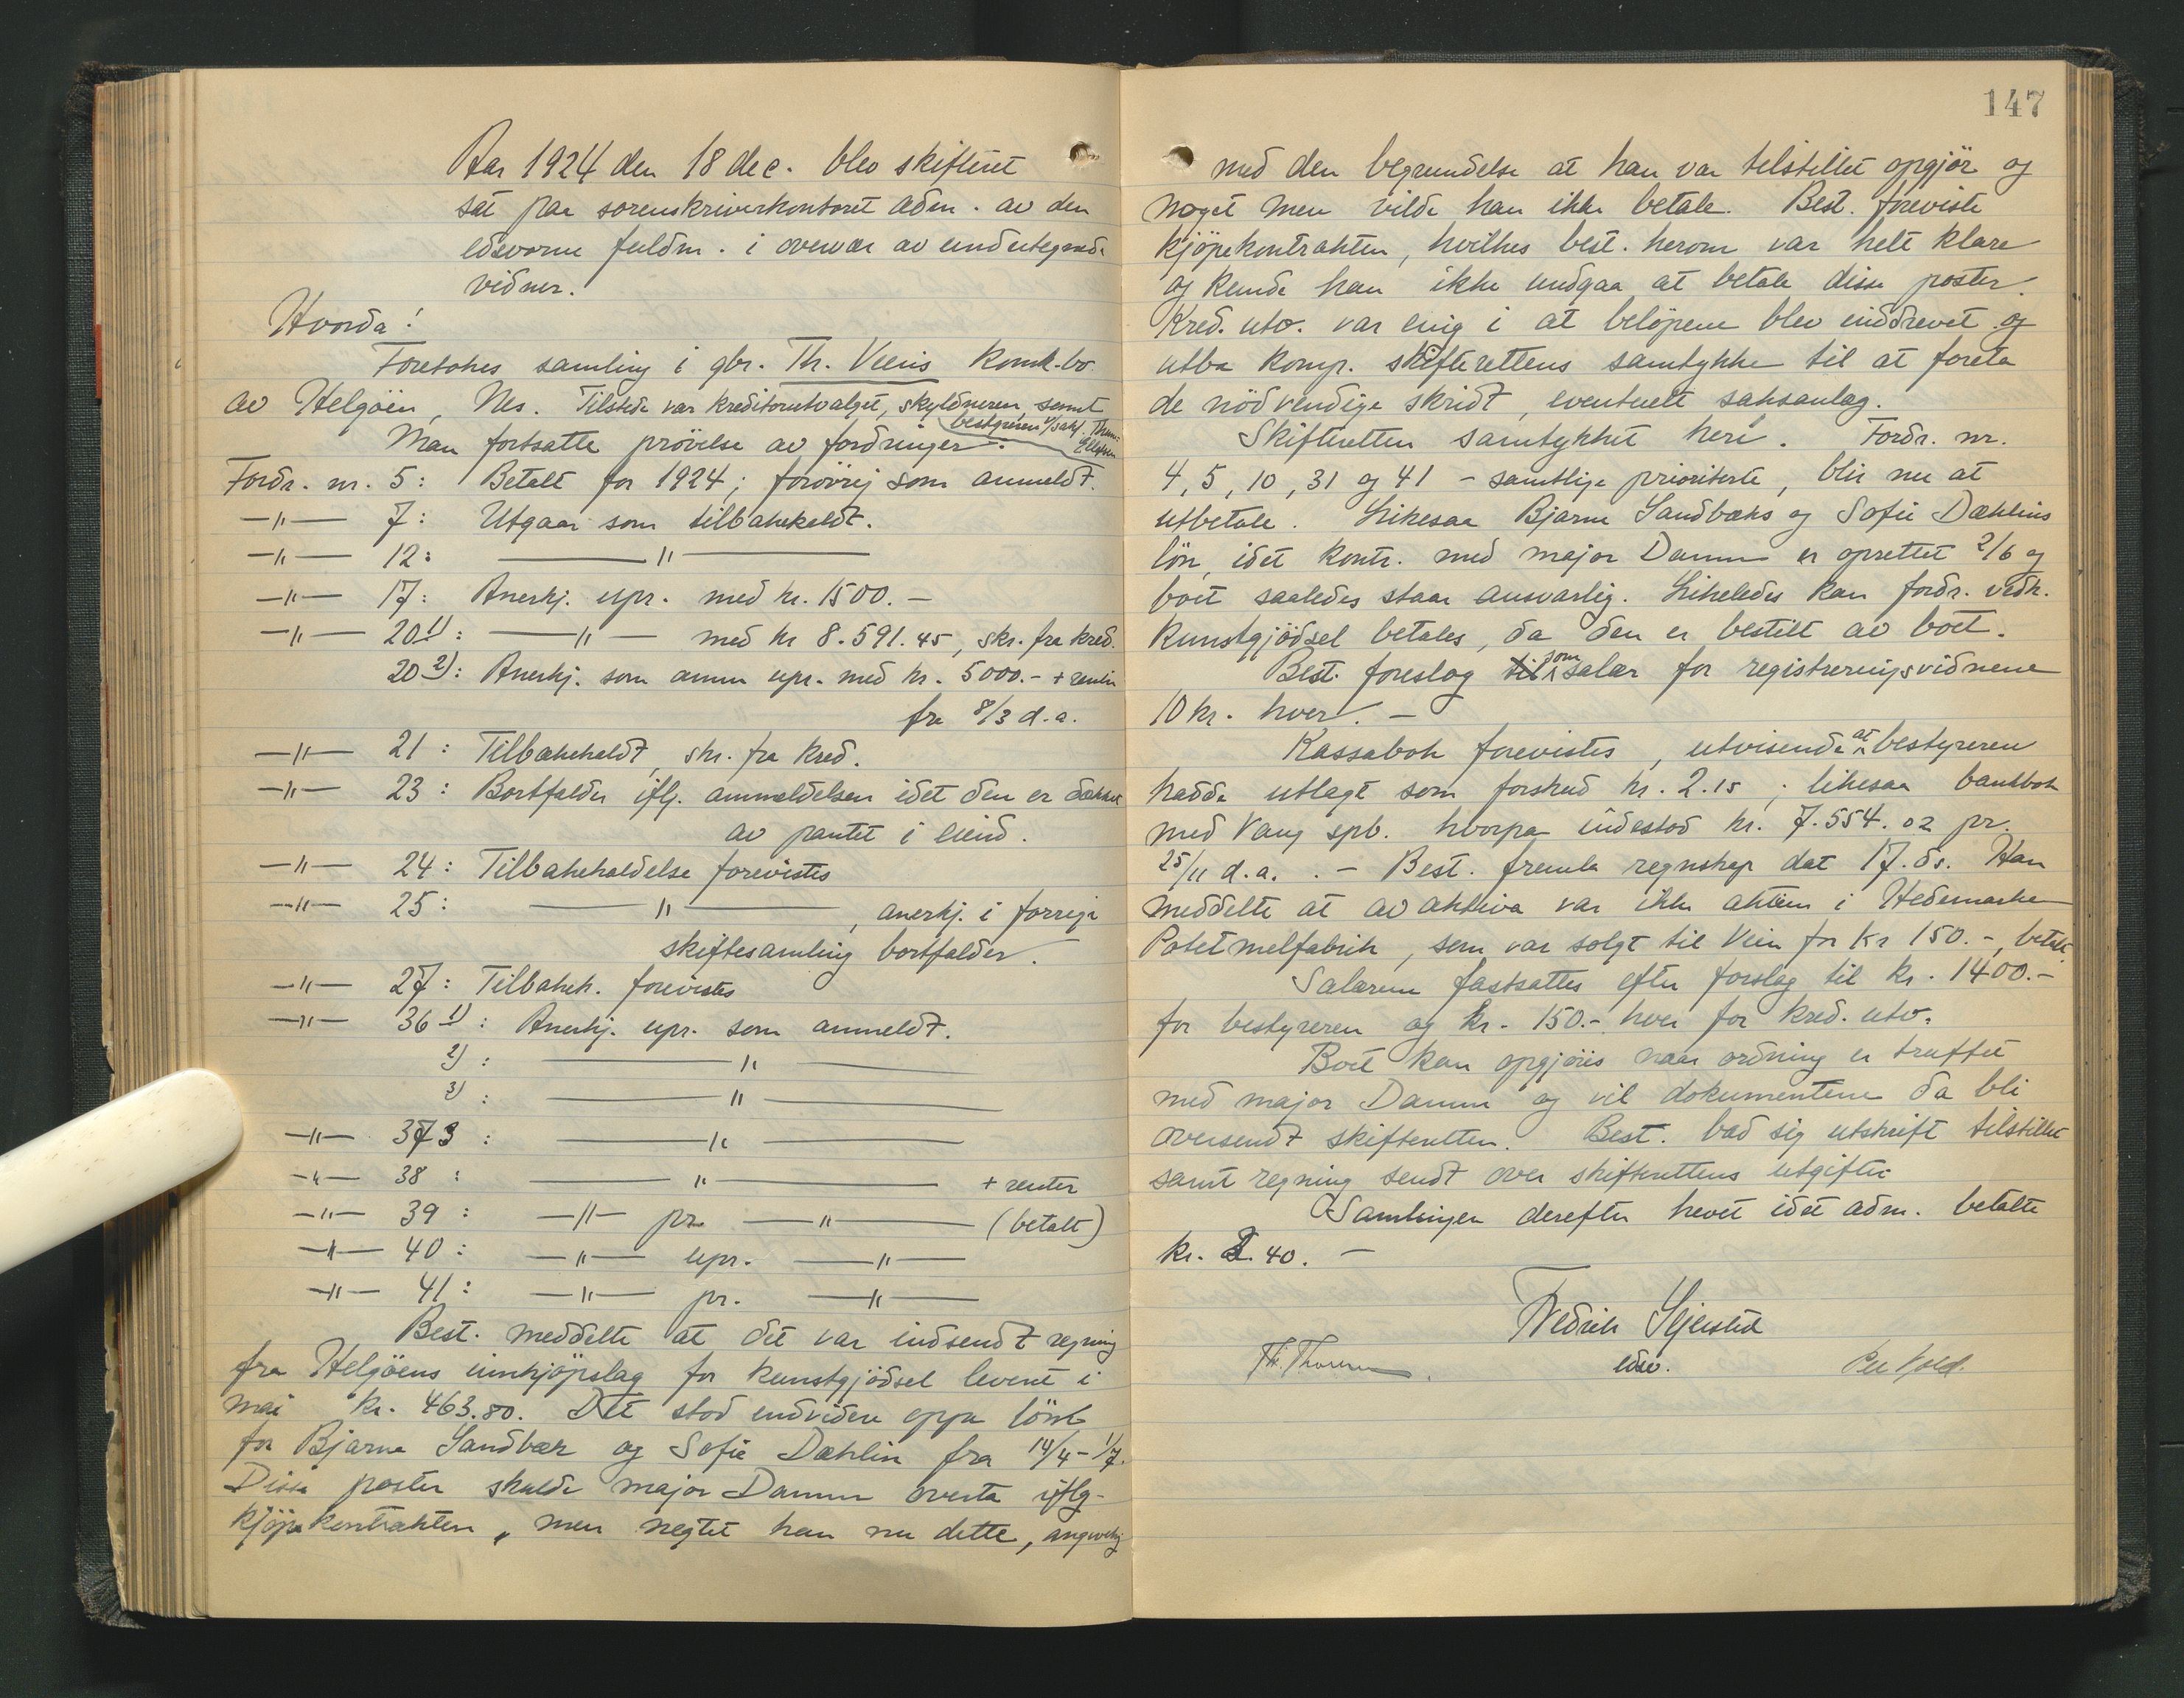 Aar 1924 den 18 dec. blev skifteret
sat paa sorenskriverkontoret adm. av den
edsvorne fuldm. i overvær av undertegnede
vidner.
Hvorda!
Foretokes samling i gbr. Th. Veens konk.bo
av Helgøen, Nes. Tilstede var kreditorutvalget, skyldneren, samt
bestyreren o/sakf. Thom:
Ellefsen
Man fortsatte prøvelse av fordringer:
Fordr. nr. 5: Betalt for 1924; forøvrig som anmeldt.
—"— 7: Utgaar som tilbakekaldt.
—"— 12: ——"——
—"— 17: Anerkj. upr. med kr. 1500.—
—"— 20 1): ——"— med kr 8.591.45, skr. fra kred.
20 2): Anerkj. som anm upr. med kr. 5000.- + renter
fra 8/3 d.a.
—"— 21: Tilbakekaldt, skr. fra kred.
—"— 23: Bortfalder iflg. anmeldelsen idet den er dækket
av pantet i eiend.
—"— 24: Tilbakekaldelse forevistes
—"— 25: ——"——, anerkj. i forrige
skiftesamling bortfalder.
—"— 27: Tilbakek. forevistes
—"— 36 1): Anerkj. upr. som anmeldt.
2): ——"——
3): ——"——
—"— 373: ——"——
—"— 38: ——"—— + renter
—"— 39: —"— pr. ——"—— (betalt)
—"— 40: —"— upr. —"—
—"— 41: —"— pr. —"—
Best. meddelte at det var indsendt regning
fra Helgøens innkjøpslag for kunstgjødsel levert i
mai kr. 463.80. Det stod endvidere oppe lønn
for Bjarne Sandbæk og Sofie Dæhlin fra 14/4-1/7.
Disse poster skulde major Damm overta iflg.
kjøpekontrakten, men negtet han nu dette, angivelig
147
med den begrundelse at han var tilstillet opgjør og
noget mere vilde han ikke betale. Best. foreviste
kjøpekontrakten, hvilkes best. herom var helt klare
og kunde han ikke undgaa at betale disse poster.
Kred. utv. var enig i at beløpene blev inddrevet og
utba komp. skifterettens samtykke til at foreta
de nødvendige skridt, eventuelt saksanlæg.
Skifteretten samtykket heri. Fordr. nr.
4, 5, 10, 31 og 41 - samtlige prioriterte, blir nu at
utbetale. Likesaa Bjarne Sandbæks og Sofie Dæhlins
løn, idet kontr. med major Damm er oprettet 2/6 og
boet saaledes staar ansvarlig. Likeledes kan fordr. vedk.
kunstgjødsel betales, da den er bestilt av boet.
Best. foreslog som salær for registreringsvidnene
10 kr. hver. —
Kassabok forevistes, utvisende at bestyreren
hadde utlagt som forskud kr. 2.15; likesaa bankbok
med Vang spb. hvorpaa indestod kr. 7.554.02 pr.
25/11 d.a. . - Best. fremla regnskap dat 17. ds. Han
meddelte at av aktiva var ikke aktien i Hedemarken
Potetmelfabrik, som var solgt til Veen for kr 150.-, betalt.
Salærene fastsattes efter forslag til kr. 1400.-
for bestyreren og kr. 150.- hver for kred. utv.
Boet kan opgjøres naar ordning er truffet
med major Damm og vil dokumentene da bli
oversendt skifteretten. Best. bad sig utskrift tilstillet
samt regning sendt over skifterettens utgifter
Samlingen derefter hevet idet adm. betalte
kr. 2.40. —
Fredrik Gjersted
edsv.
Th. Thoresen
Per Kold.